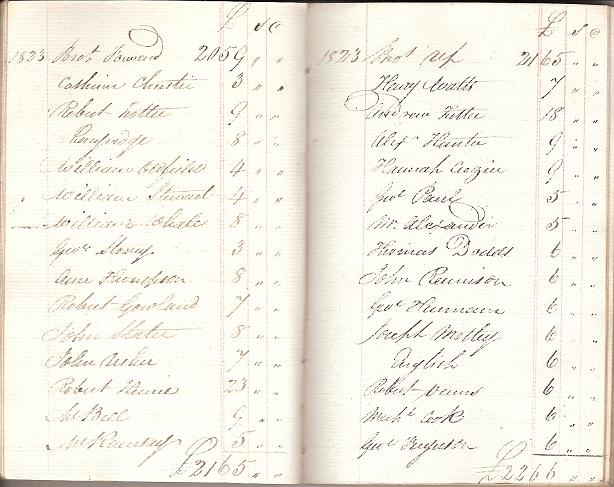 £ s d
1823 Bro.t Forward 2059 " "
Christie 3 " "
Robert 9 " "
8 " "
William Oldfield 4 " "
" William Stewart 4 " "
" William 8 " "
Geo.e Storey 3 " "
Ann Thompson 8 " "
Robert Gowland 7 " "
John Slater 8 " "
John Usher 7 " "
Robert 23 " "
Mr 9 " "
Mr Ramsey 5 " "
£2165 " "
£ s d
1823 Bro.t up 2165 " "
Henry Watts 7 " "
Andrew 18 " "
Alex.r Hunter 9 " "
Hannah 9 " "
Geo.e Paul 5 " "
Mr. Alexander 5 " "
Thomas Dodds 6 " "
John Rennison 6 " "
Geo.e 6 " "
Joseph Motley 6 " "
English 6 " "
Robert 6 " "
Mich.l Cook 6 " "
Geo.e Ferguson 6 " "
£2266 " "